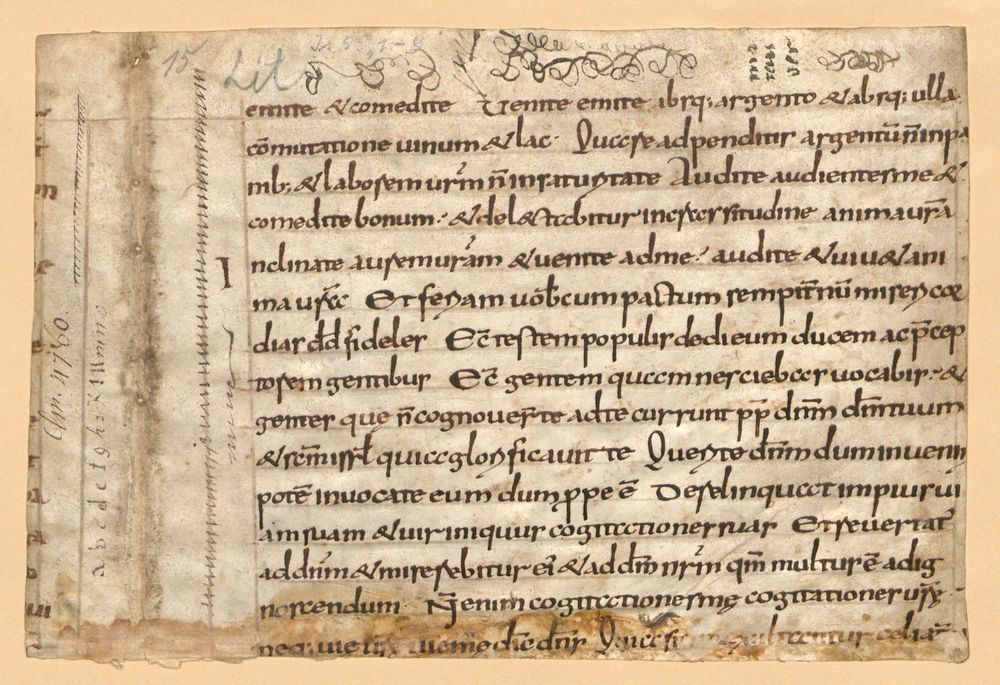 15 Lit Is 55, 1-9
emite & comedite Venite emite absq; argento & absq; ulla
cōmutatione uinum & lac· Quare adpenditis argentū n̄ in pa
nib; & laborem urm̄ n̄ in saturitate Audite audientes me &
comedite bonum· & delectabitur in crassitudine anima ur̄a
Inclinate aurem ur̄am & uenite ad me· audite & uiu& ani
ma ur̄a Et feriam uobcum pactum sempit̄nū misericor
dias dd fideles Ecc̄ testem populis dedi eum ducem ac p̄cep
torem gentibus Ecc̄ gentem quam nesciebas uocabis· &
gentes que n̄ cognouer̄ te ad te current pp̄ dnm̄ dm̄ tuum
& scm̄ isrl̄ quia glorificauit te Querite dnm̄ dum inueniri
potē inuocate eum dum ppe ē Derelinquat impius ui
am suam & uir iniquus cogitationes suas Et reuertat̄
ad dnm̄ & miserebitur ei & ad dm̄ nrm̄ qm̄ multus ē ad ig
noscendum· N̄ enim cogitationes mę cogitationes ur̄ę
neq; uię ur̄ę uię mę dic̄ dns̄ Quia exaltantur celi a
Clm. 4760.
a b c d e f g h i k l m n o